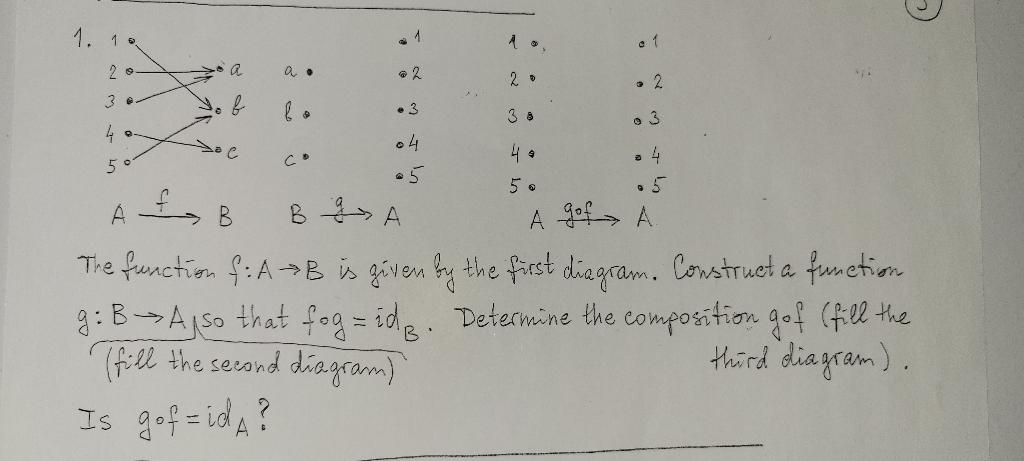 3
1. 1 1 1 1
2 a a 2 2 2
3 b b 3 3 3
4 c c 4 4 4
5 5 5 5
A f→ B B g→ A A g∘f→ A
The function f: A→B is given by the first diagram. Construct a function
g: B→A, so that f∘g = id_B. Determine the composition g∘f (fill the
(fill the second diagram) third diagram).
Is g∘f = id_A?